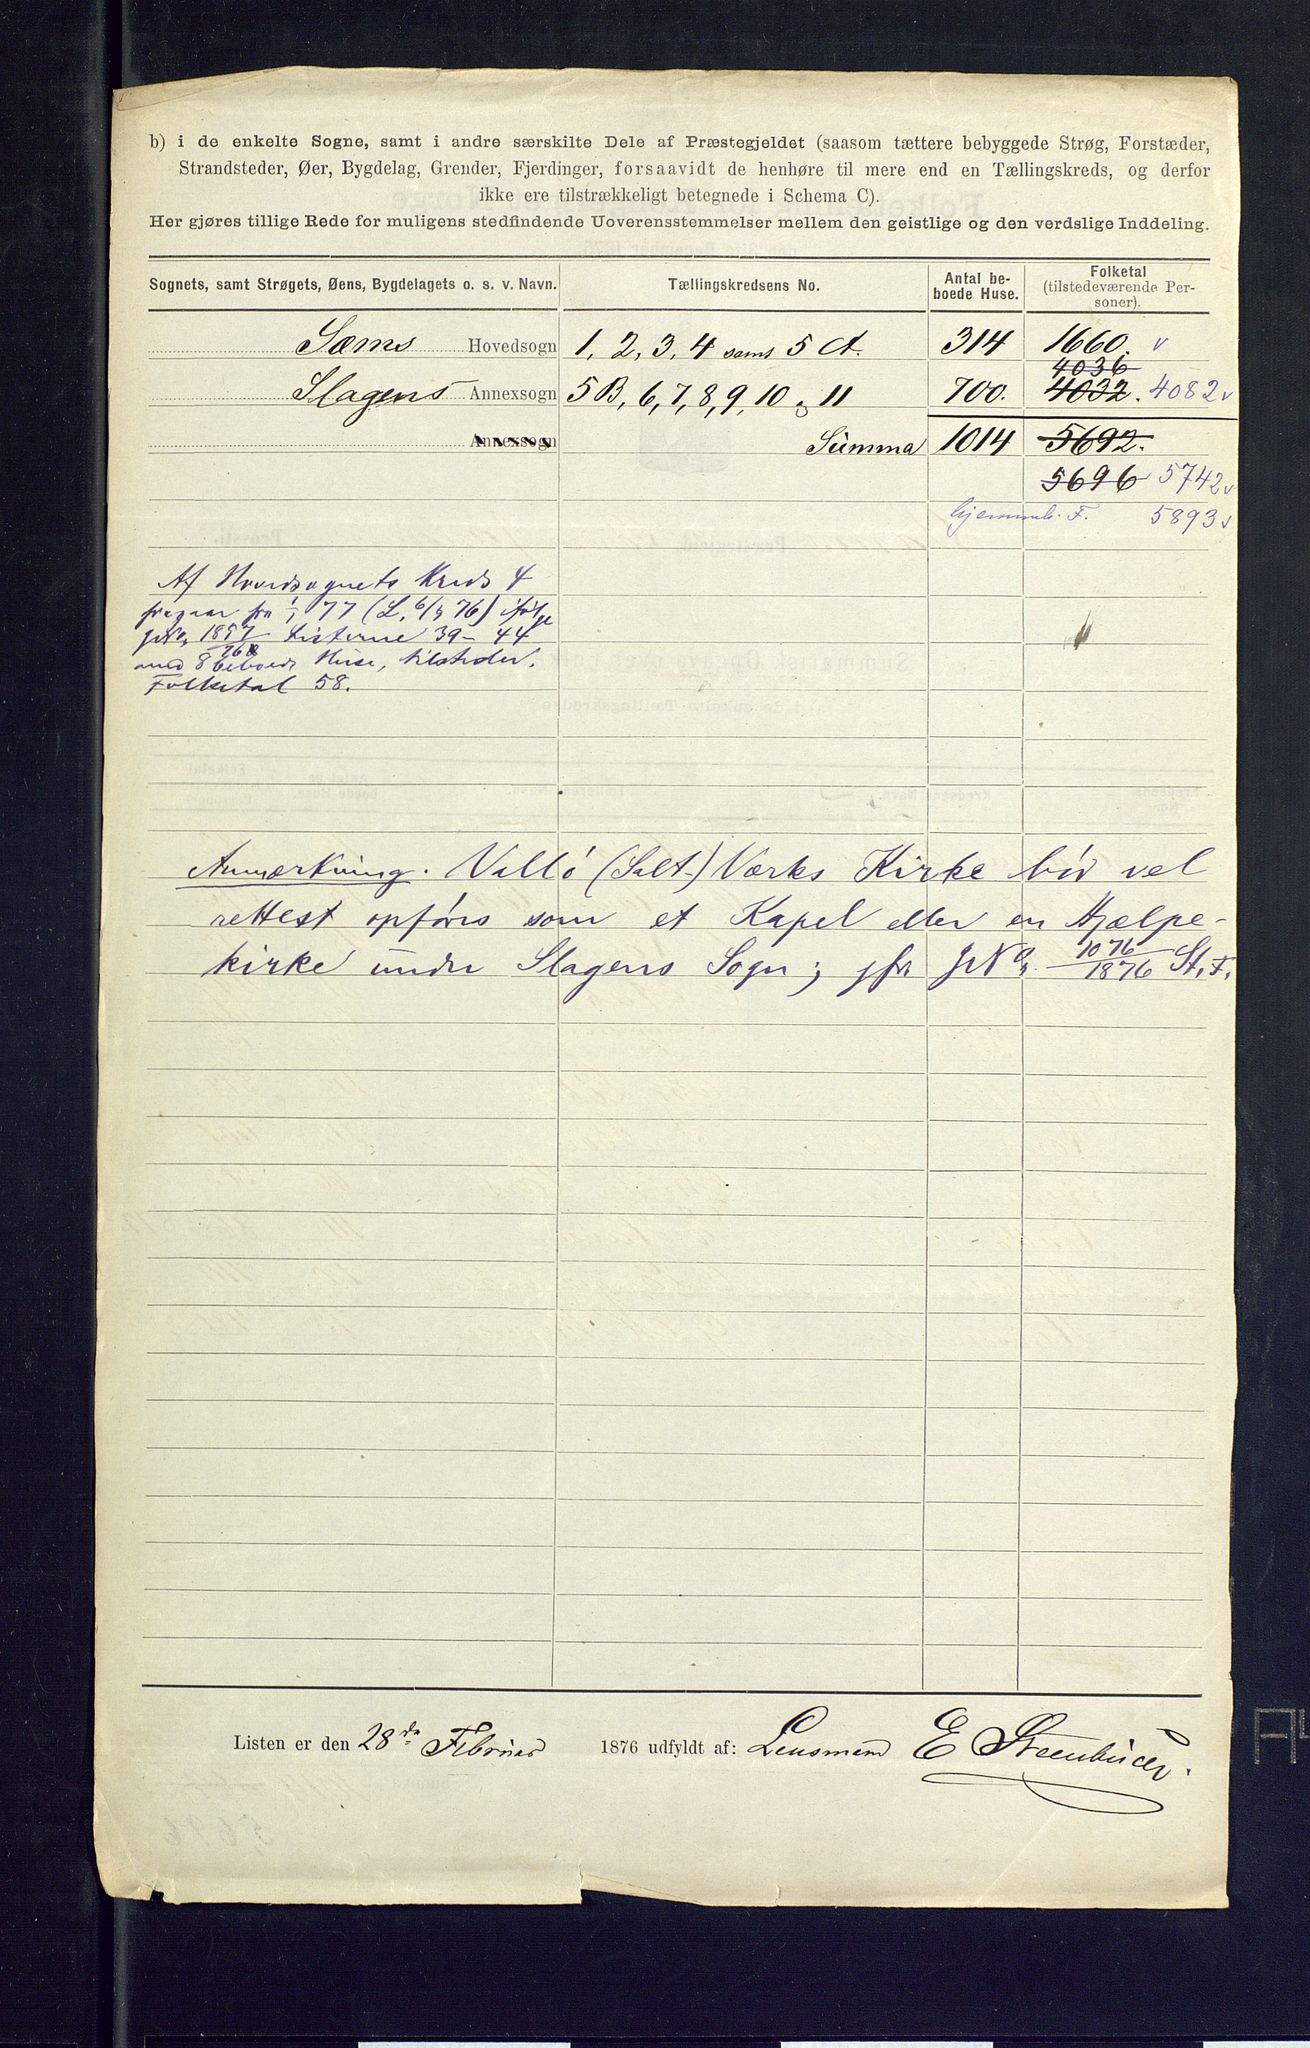 b) i de enkelte Sogne, samt i andre særskilte Dele af Præstegjeldet (saasom tættere bebyggede Strøg, Forstæder,
Strandsteder, Øer, Bygdelag, Grender, Fjerdinger, forsaavidt de henhøre til mere end en Tællingskreds, og derfor
ikke ere tilstrækkeligt betegnede i Schema C).
Her gjøres tillige Rede for muligens stedfindende Uoverensstemmelser mellem den geistlige og den verdslige Inddeling.
Sognets, samt Strøgets, Øens, Bygdelagets o. s. v. Navn. Tællingskredsens No. Antal beboede Huse. Folketal (tilstedeværende Personer).
Sæms Hovedsogn 1, 2, 3, 4 sams 5 A. 314 1660. v
4036
Slagens Annexsogn 5 B, 6, 7, 8, 9, 10 o 11 700. 4032. 4082 v
Annexsogn Summa 1014 5692.
5696 5742 v
hjemmeh. F. 5893 v
Af Hovedsognets Kreds 4
fragaar fra 1/1 77 (L. 6/5 76) ifølge
JNo. 1857/76 Listerne 39-44
med 8 beboede Huse, tilstedev.
Folketal 58.
Anmærkning. Vallö (Salt-) Værks Kirke bör vel
rettest opföres som et Kapel eller en Hjælpe-
kirke under Slagens Sogn; jfr JNo. 1076/1876 St. F.
Listen er den 28de Februar 1876 udfyldt af: Lensmand E Steenbuch.
5696